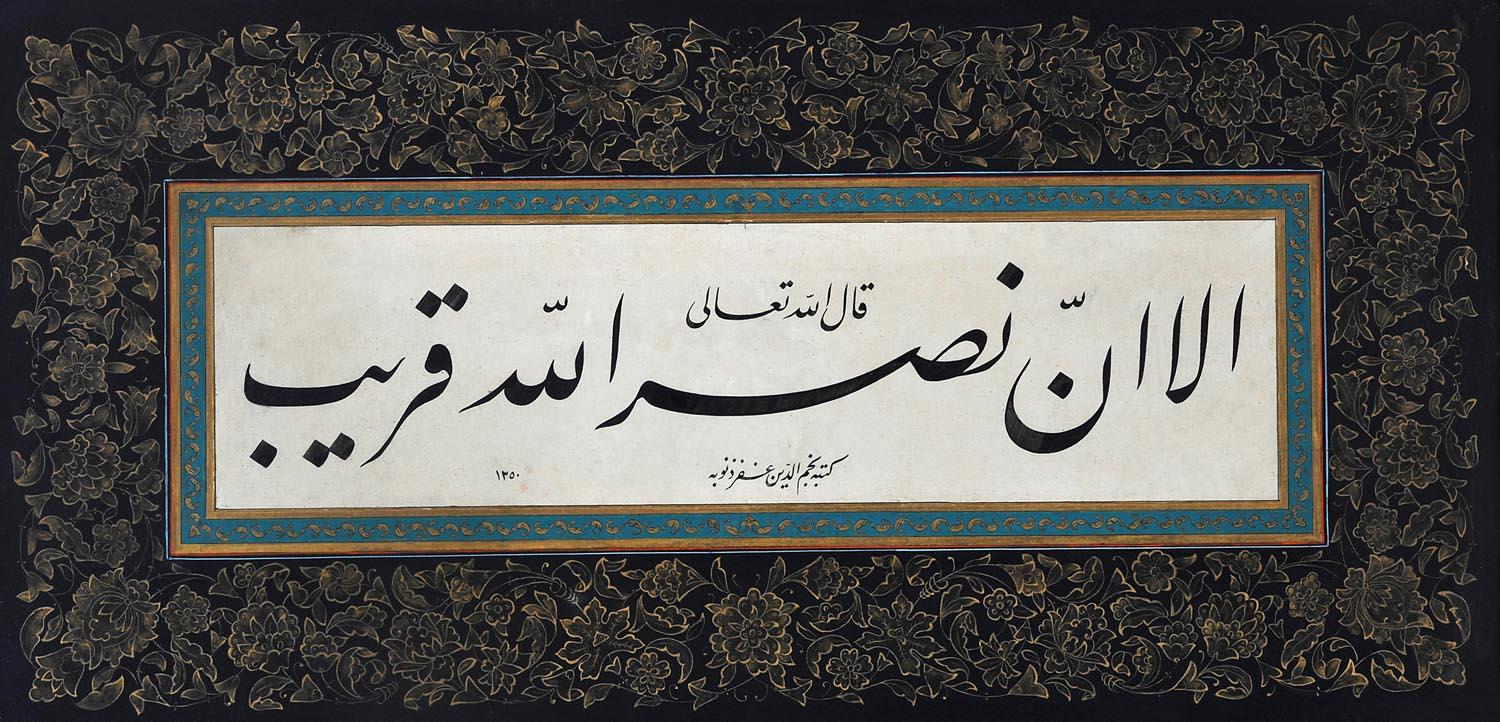 قال الله تعالى
الا انّ نصر اللّه قريب
كتبه نجم الدّين غفر ذنوبه
١٣٥٠